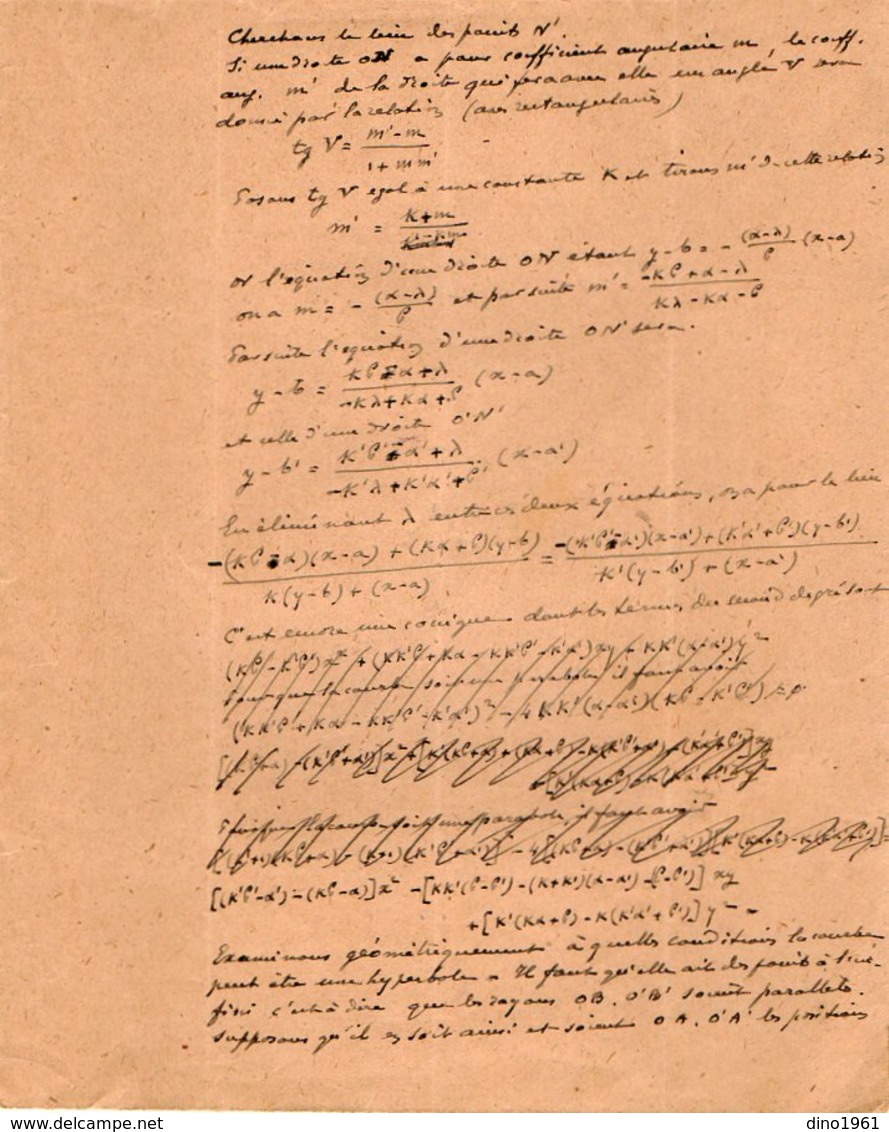 Cherchons le lieu des points N'.
Si une droite ON a pour coefficient angulaire m, le coeff.
ang. m' de la droite qui fera avec elle un angle V sera
donné par la relation (axes rectangulaires)
tg V = (m' - m) / (1 + mm')
Posons tg V égal à une constante K et tirons m' de cette relation
m' = (K + m) / (1 - Km)
or l'équation d'une droite ON étant y - b = - (α - λ)/ρ (x - a)
on a m = - (α - λ)/ρ et par suite m' = (-Kρ + α - λ) / (Kλ - Kα - ρ)
Par suite l'équation d'une droite ON' sera.
y - b = (Kρ - α + λ) / (-Kλ + Kα + ρ) (x - a)
et celle d'une droite O'N'
y - b' = (K'ρ' - α' + λ) / (-K'λ + K'α' + ρ') (x - a')
En éliminant λ entre ces deux équations, on a pour le lieu
(-(Kρ - α)(x - a) + (Kα + ρ)(y - b)) / (K(y - b) + (x - a)) = (-(K'ρ' - α')(x - a') + (K'α' + ρ')(y - b')) / (K'(y - b') + (x - a'))
C'est encore une conique dont les termes du second degré sont
(Kρ - K'ρ')x² + (KK'ρ + Kα - KK'ρ' - K'α')xy + KK'(α - α')y²
Pour que la courbe soit une parabole il faut avoir
(KK'ρ + Kα - KK'ρ' - K'α')² - 4KK'(α - α')(Kρ - K'ρ') = 0
Pour que la courbe soit une parabole, il faut avoir
[(K'ρ' - α') - (Kρ - α)]x² - [KK'(ρ - ρ') - (K + K')(α - α') - (ρ - ρ')] xy
+ [K'(Kα + ρ) - K(K'α' + ρ')] y² =
Examinons géométriquement à quelles conditions la courbe
peut être une hyperbole. Il faut qu'elle ait des points à l'in-
fini c'est à dire que les rayons OB, O'B' soient parallèles.
supposons qu'il en soit ainsi et soient OA, O'A' les positions
dino1961